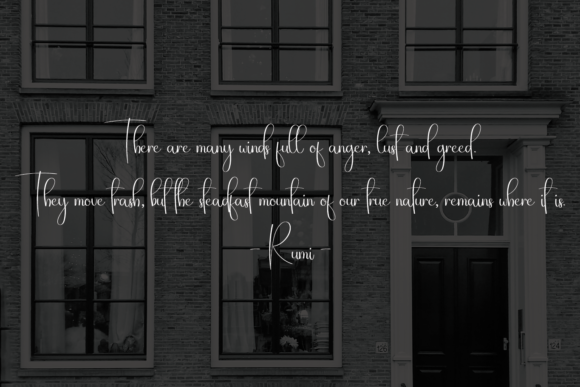 There are many winds full of anger, lust and greed.
They move trash, but the steadfast mountain of our true nature, remains where it is.
- Rumi -